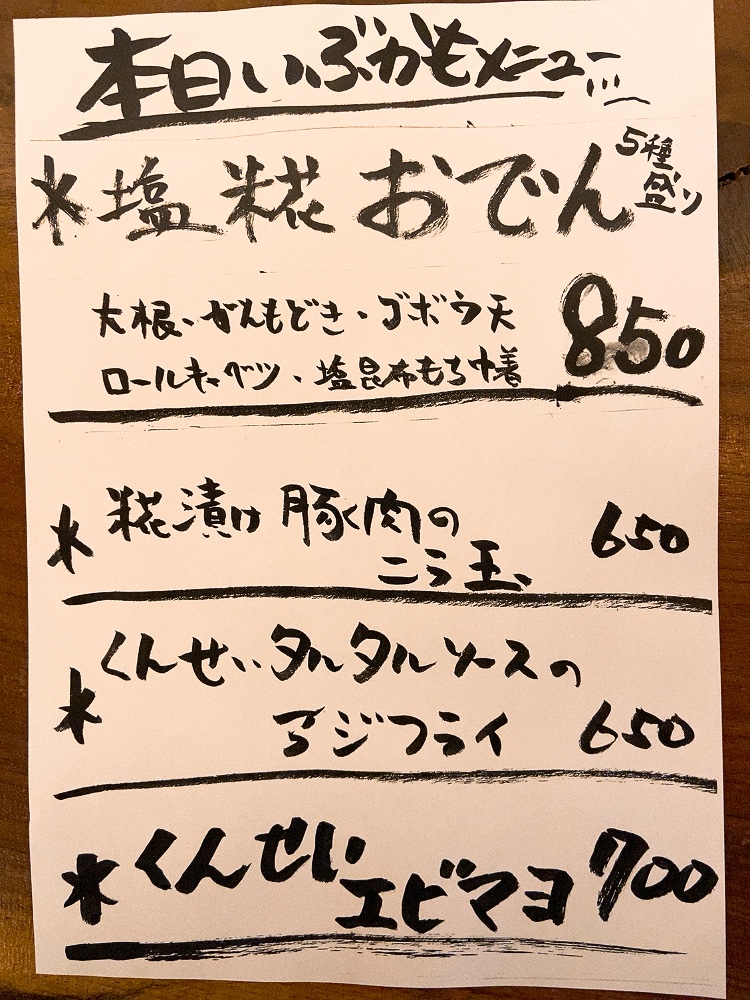 本日いぶかもメニュー
*塩糀おでん 5種盛り
大根、がんもどき、ゴボウ天
ロールキャベツ、塩昆布もち巾着 850
*糀漬け 豚肉の
ニラ玉 650
*くんせいタルタルソースの
アジフライ 650
*くんせい
エビマヨ 700